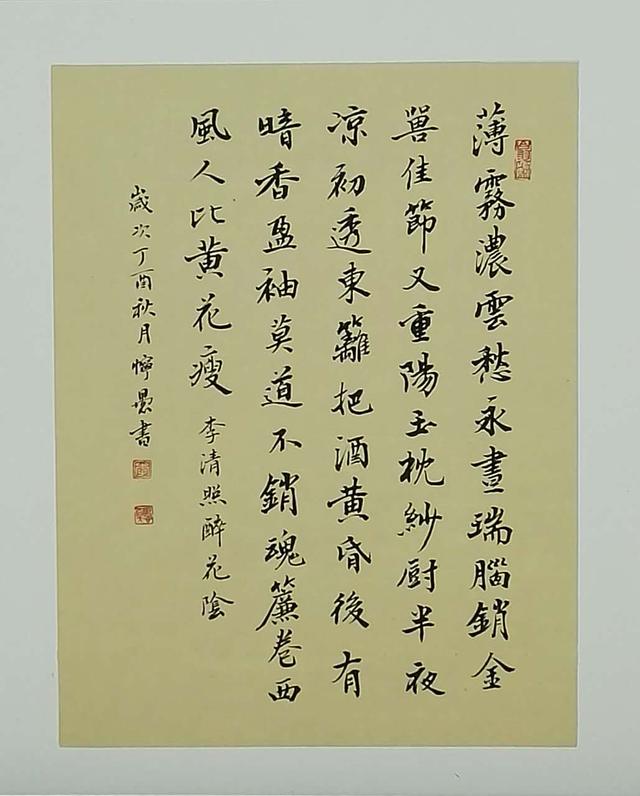 薄霧濃雲愁永晝瑞腦銷金
獸佳節又重陽玉枕紗廚半夜
涼初透東籬把酒黃昏後有
暗香盈袖莫道不銷魂簾卷西
風人比黃花瘦 李清照醉花陰
歲次丁酉秋月 書